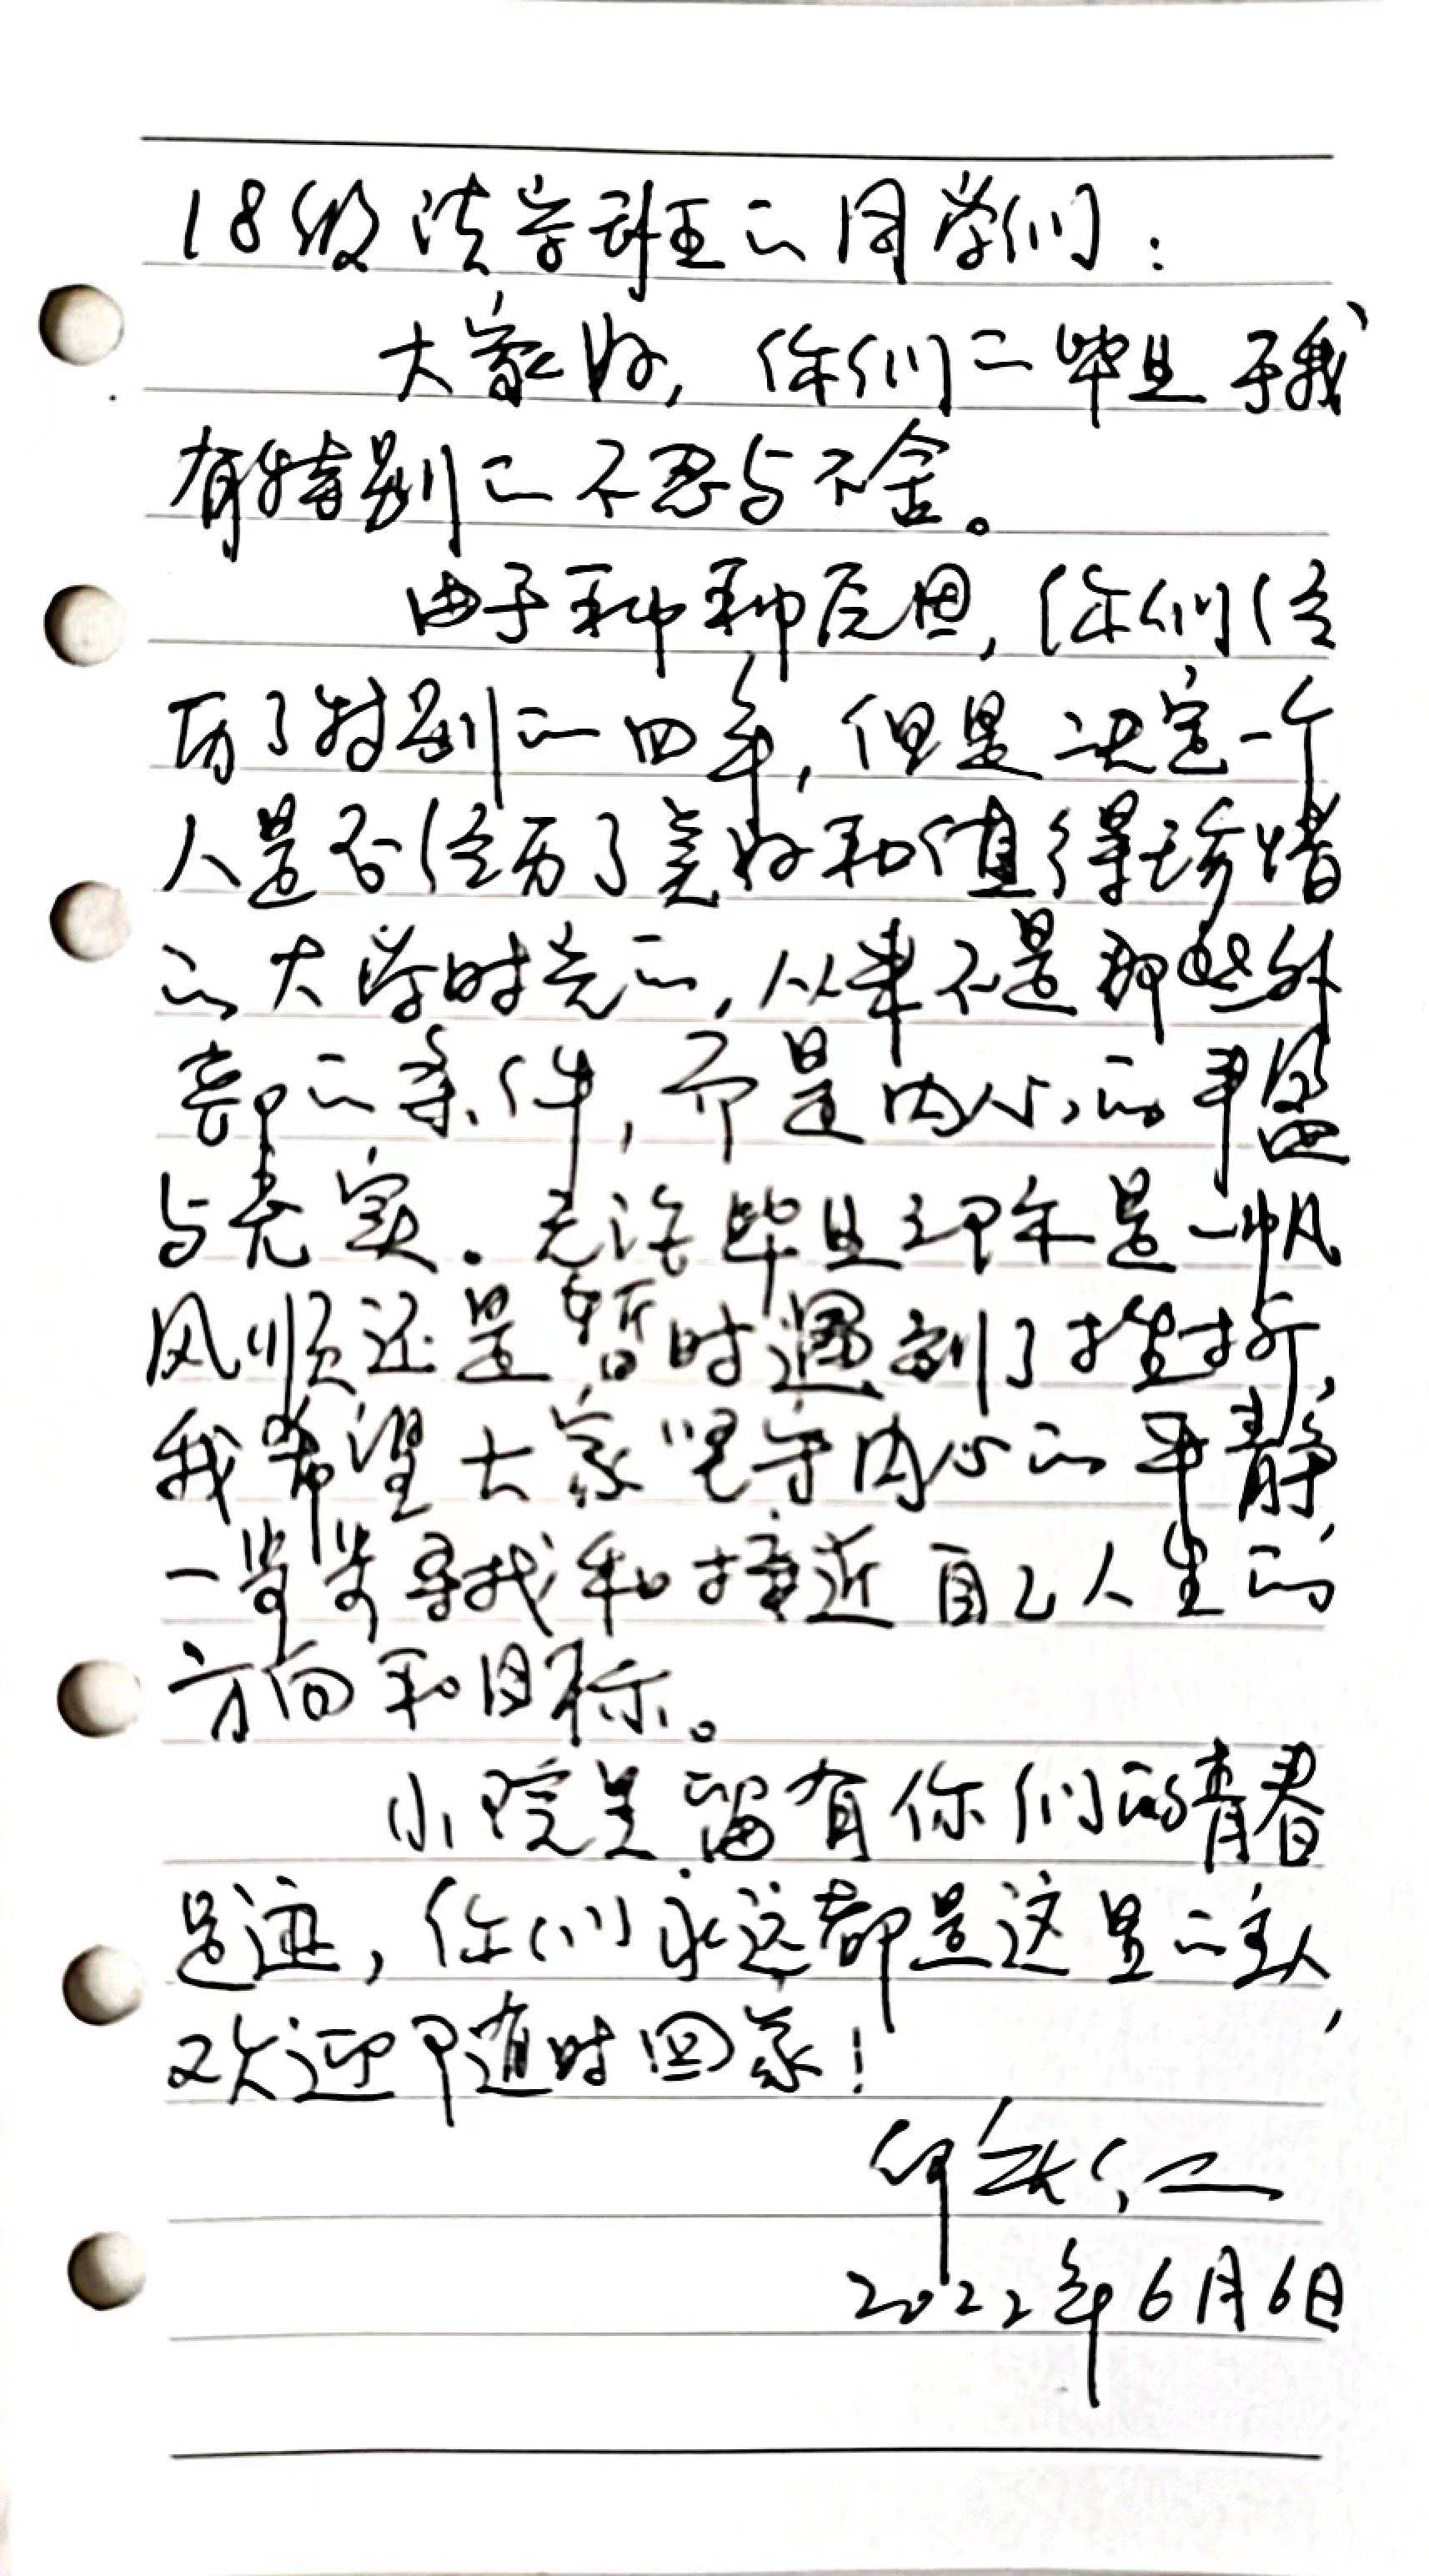 18级法学班的同学们：
大家好，你们的毕业于我
有特别的不忍与不舍。
由于种种原因，你们经
历了特别的四年，但是决定一个
人是否经历了美好和值得珍惜
的大学时光的，从来不是那些外
部的条件，而是内心的丰盈
与充实。无论毕业之即你是一帆
风顺还是暂时遇到了挫折，
我希望大家坚守内心的平静，
一步步寻找和接近自己人生的
方向和目标。
小院里留有你们的青春
足迹，你们永远都是这里的主人，
欢迎随时回家！
2022年6月6日